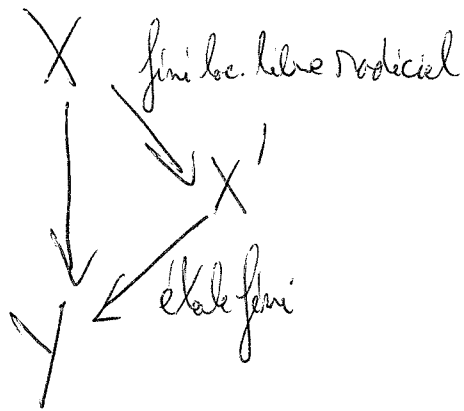 X fini loc. libre radiciel
X'
étale fini
Y